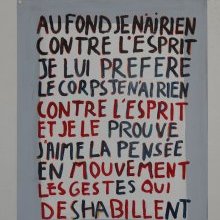 AU FOND JE N'AI RIEN
CONTRE L'ESPRIT
JE LUI PREFERE
LE CORPS JE N'AI RIEN
CONTRE L'ESPRIT
ET JE LE PROUVE
J'AIME LA PENSÉE
EN MOUVEMENT
LES GESTES QUI
DESHABILLENT